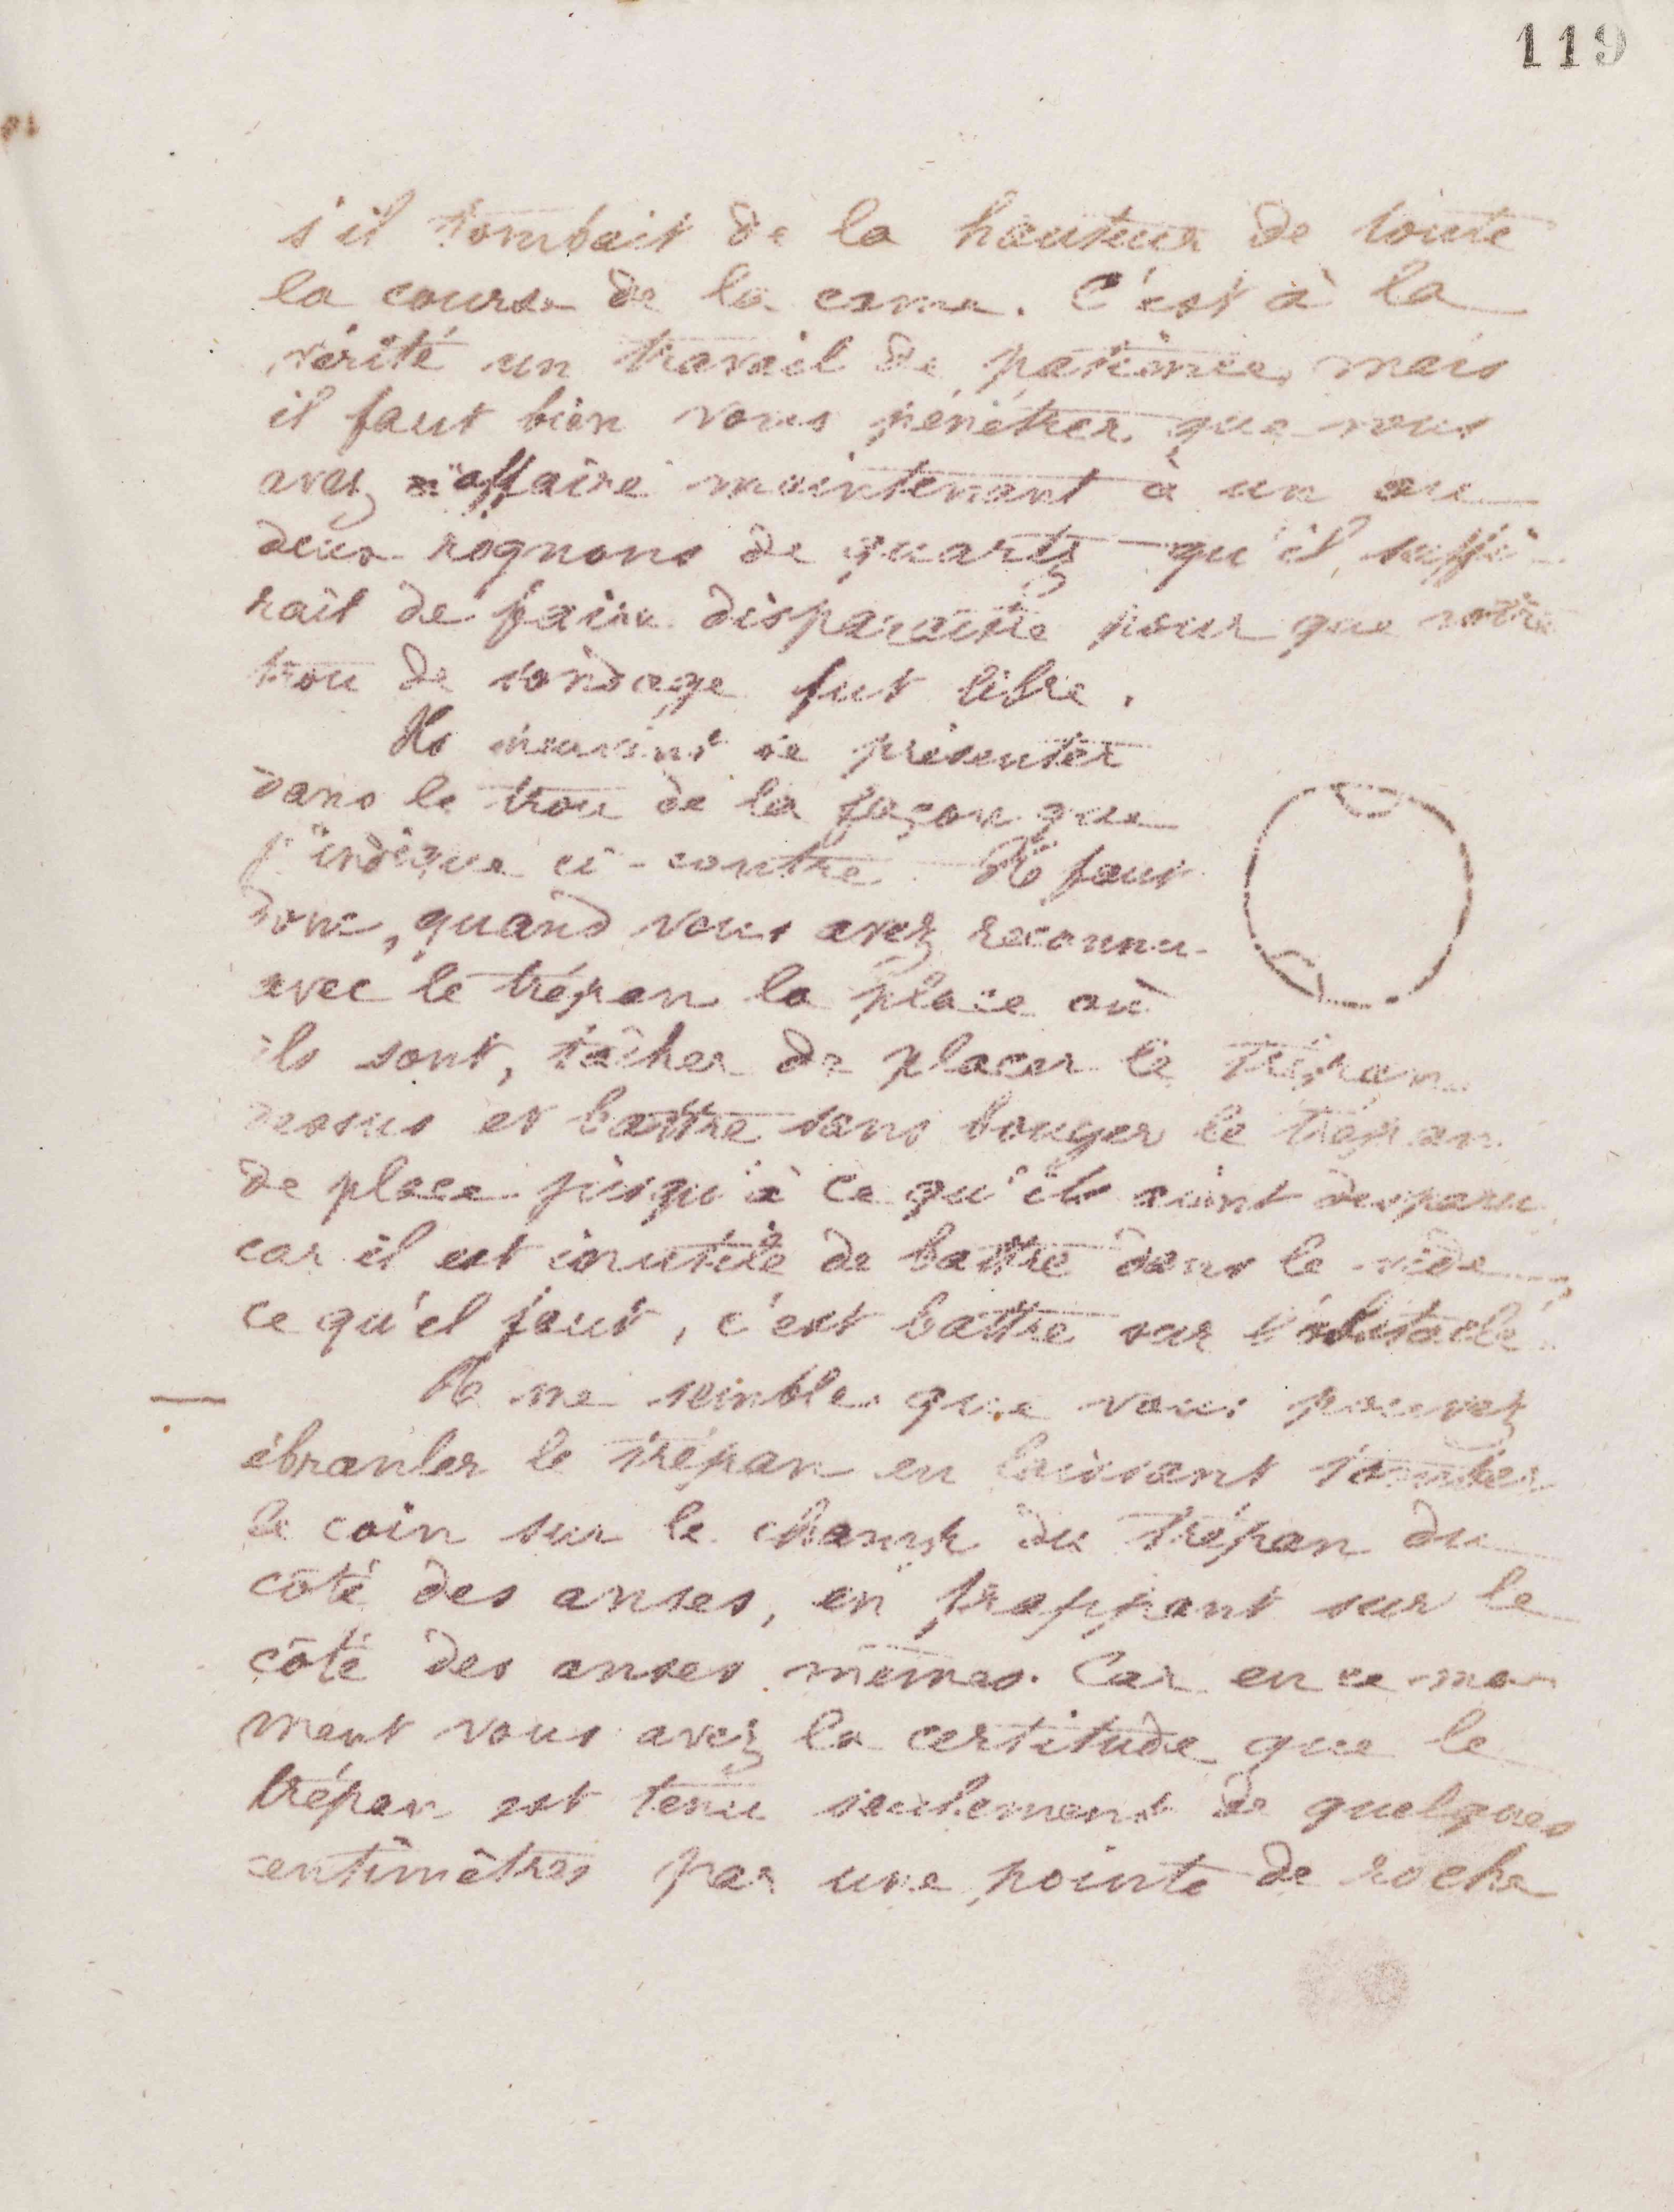 119
s'il tombait de la hauteur de toute
la course de la came. C'est à la
vérité un travail de patience, mais
il faut bien vous pénétrer que vous
avez affaire maintenant à un ou
deux rognons de quartz qu'il suffi-
rait de faire disparaître pour que votre
trou de sondage fut libre.
Ils se présenter
dans le trou de la façon que
j'indique ci-contre. Il faut
donc, quand vous avez reconnu
avec le trépan la place où
ils sont, tâcher de placer le trépan
dessus et battre sans bouger le trépan
de place jusqu'à ce qu'ils aient disparu,
car il est inutile de battre dans le vide,
ce qu'il faut, c'est battre sur l'obstacle.
Il me semble que vous pouvez
ébranler le trépan en laissant tomber
le coin sur le champ du trépan du
côté des anses, en frappant sur le
côté des anses mêmes. Car en ce mo-
ment vous avez la certitude que le
trépan est tenu seulement de quelques
centimètres par une pointe de roche